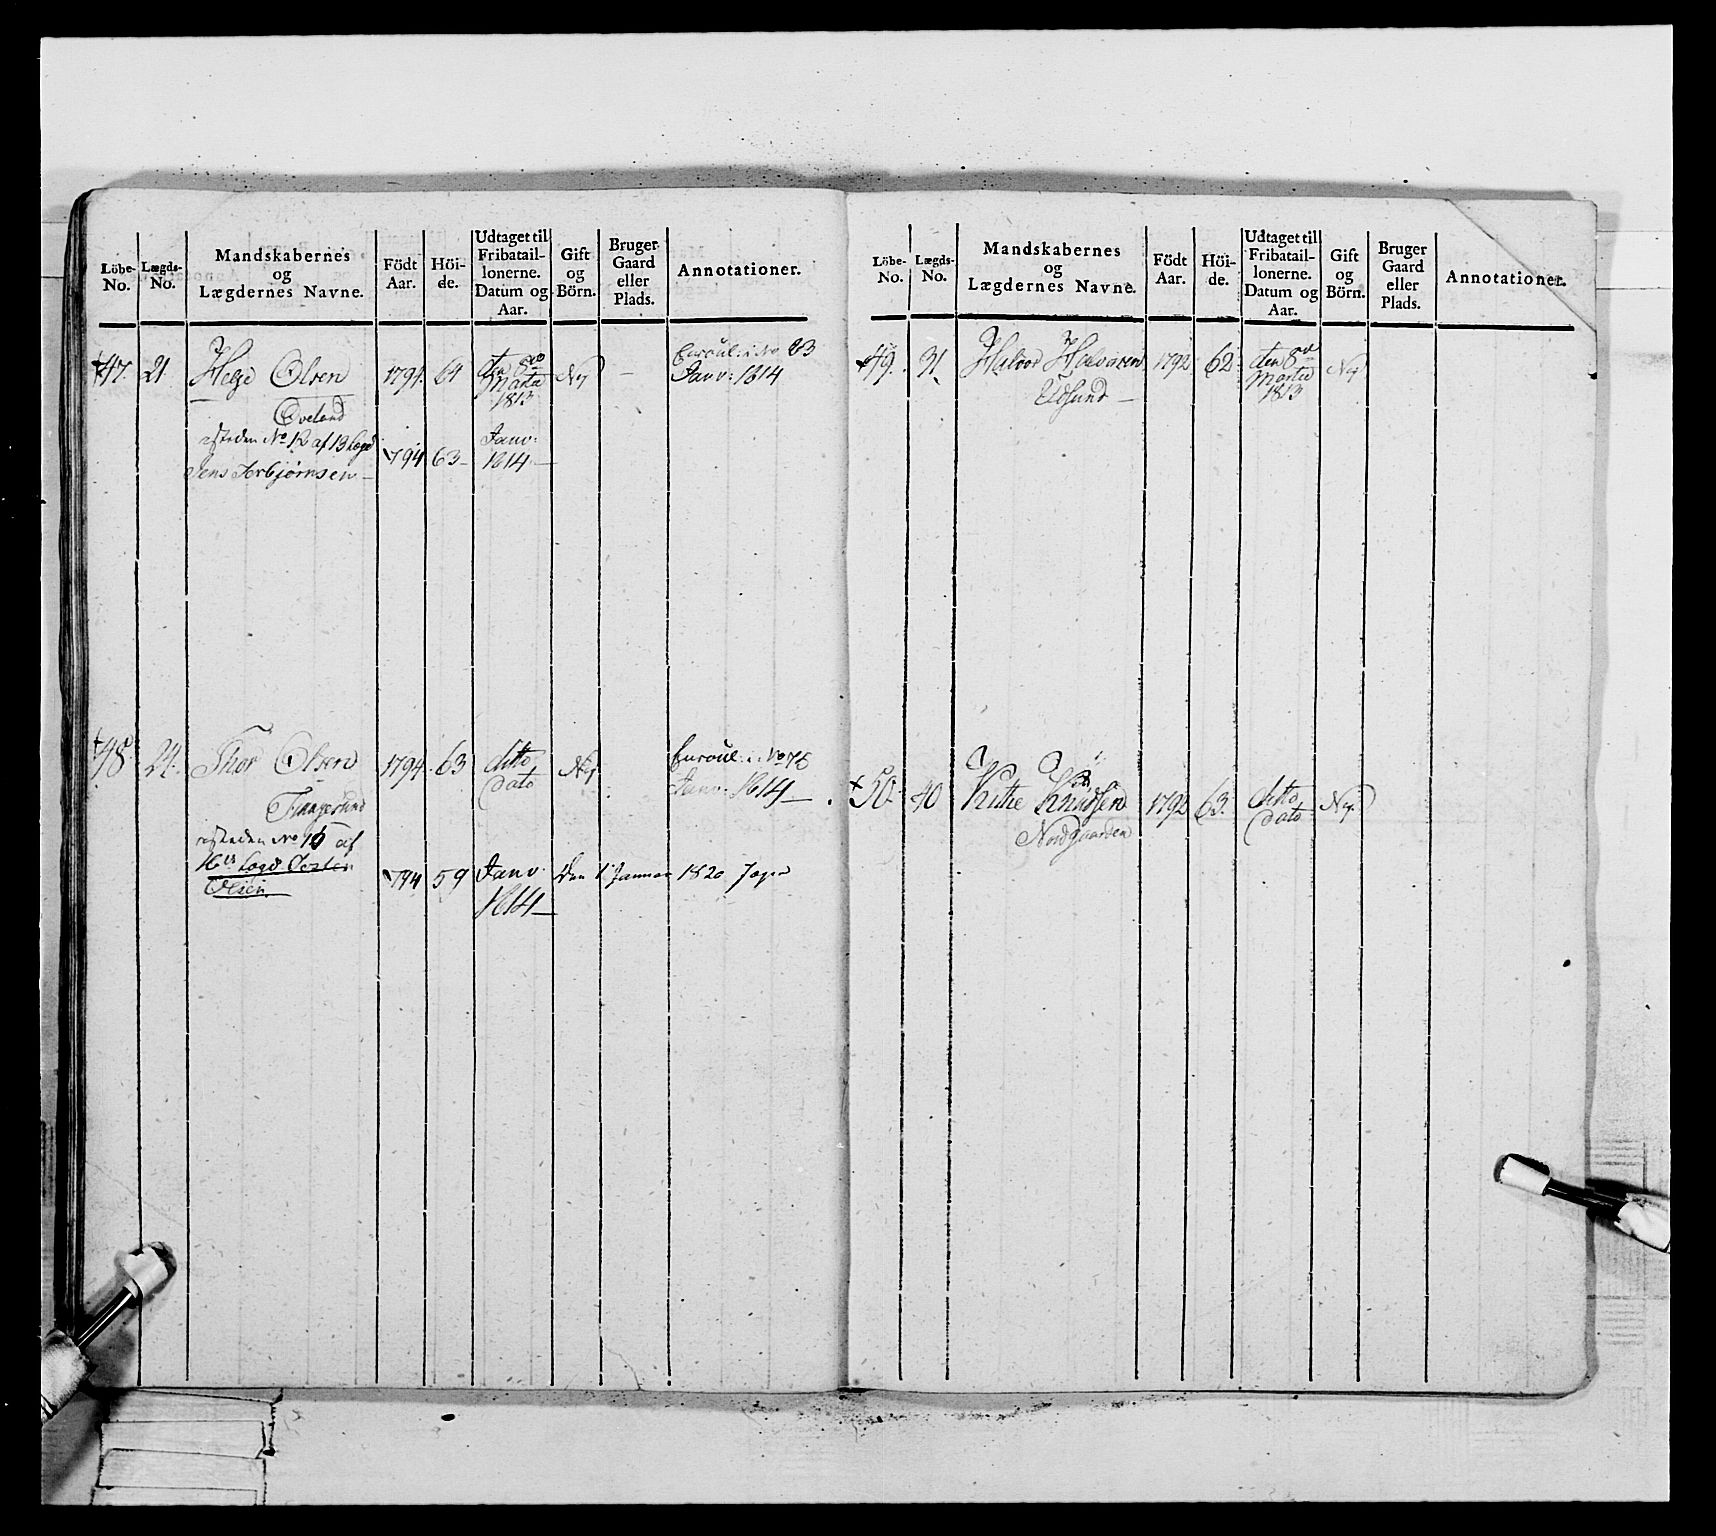 Löbe- No.
Lægds- No.
Mandskabernes og Lægdernes Navne.
Födt Aar.
Höi- de.
Udtaget til Fribatail- lonerne. Datum og Aar.
Gift og Börn.
Bruger Gaard eller Plads.
Annotationer.
47. 21 Helge Olsen 1794. 64 den 8de Martii 1813 Nej - Enroul: i No 83 Janv: 1814
Oveland
No 12 af 13 Lægd
Jens Torbjørnsen 1794 63 Janv: 1814
48. 24. Thor Olsen 1794. 63 ditto dato Nej Enroul: i No 78 Janv: 1814
No 16 af
16de Lægd
Olsen 794 59 Janv. 1814 den 1 Januar 1820
Löbe- No.
Lægds- No.
Mandskabernes og Lægdernes Navne.
Födt Aar.
Höi- de.
Udtaget til Fribatail- lonerne. Datum og Aar.
Gift og Börn.
Bruger Gaard eller Plads.
Annotationer.
49. 31 Halvor Halvorsen 1792 62. den 8de Martii 1813 Nej
Eidsund
50. 40 Knudsen 1792 63. ditto dato Nej
Nordgaarden